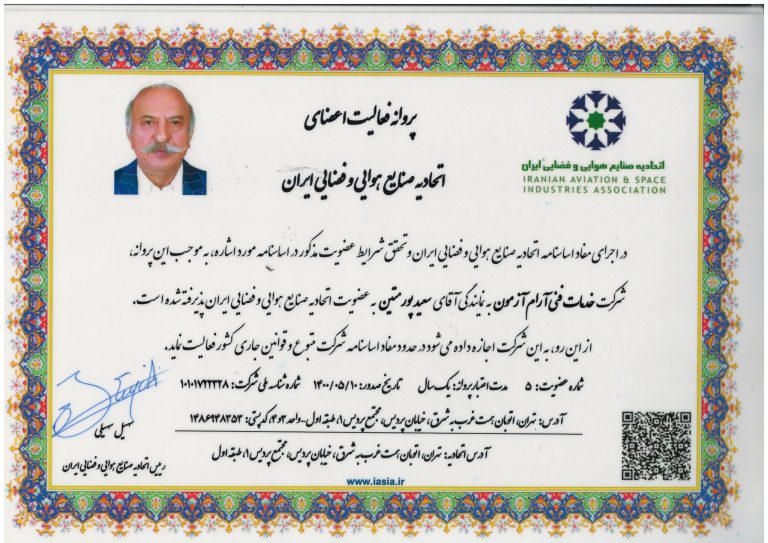 پروانه فعالیت اعضای
اتحادیه صنایع هوایی و فضایی ایران
اتحادیه صنایع هوایی و فضایی ایران
IRANIAN AVIATION & SPACE
INDUSTRIES ASSOCIATION
در اجرای مفاد اساسنامه اتحادیه صنایع هوایی و فضایی ایران و تحقق شرایط عضویت مذکور در اساسنامه مورد اشاره، به موجب این پروانه،
شرکت خدمات فنی آرام آزمون به نمایندگی آقای سعید پور متین به عضویت اتحادیه صنایع هوایی و فضایی ایران پذیرفته شده است.
از این رو، به این شرکت اجازه داده می‌شود در حدود مفاد اساسنامه شرکت متبوع و قوانین جاری کشور فعالیت نماید.
شماره عضویت: ۵ مدت اعتبار پروانه: یک سال تاریخ صدور: ۱۴۰۰/۰۵/۱۰ شماره شناسه ملی شرکت: ۱۰۱۰۱۷۲۲۳۲۸
آدرس: تهران، اتوبان همت غرب به شرق، خیابان پردیس، مجتمع پردیس ۱، طبقه اول-واحد ۴۶۳، کدپستی: ۱۴۸۶۹۴۸۳۵۳
آدرس اتحادیه: تهران، اتوبان همت غرب به شرق، خیابان پردیس، مجتمع پردیس ۱، طبقه اول
سهیل سهیلی
رییس اتحادیه صنایع هوایی و فضایی ایران
www.iasia.ir